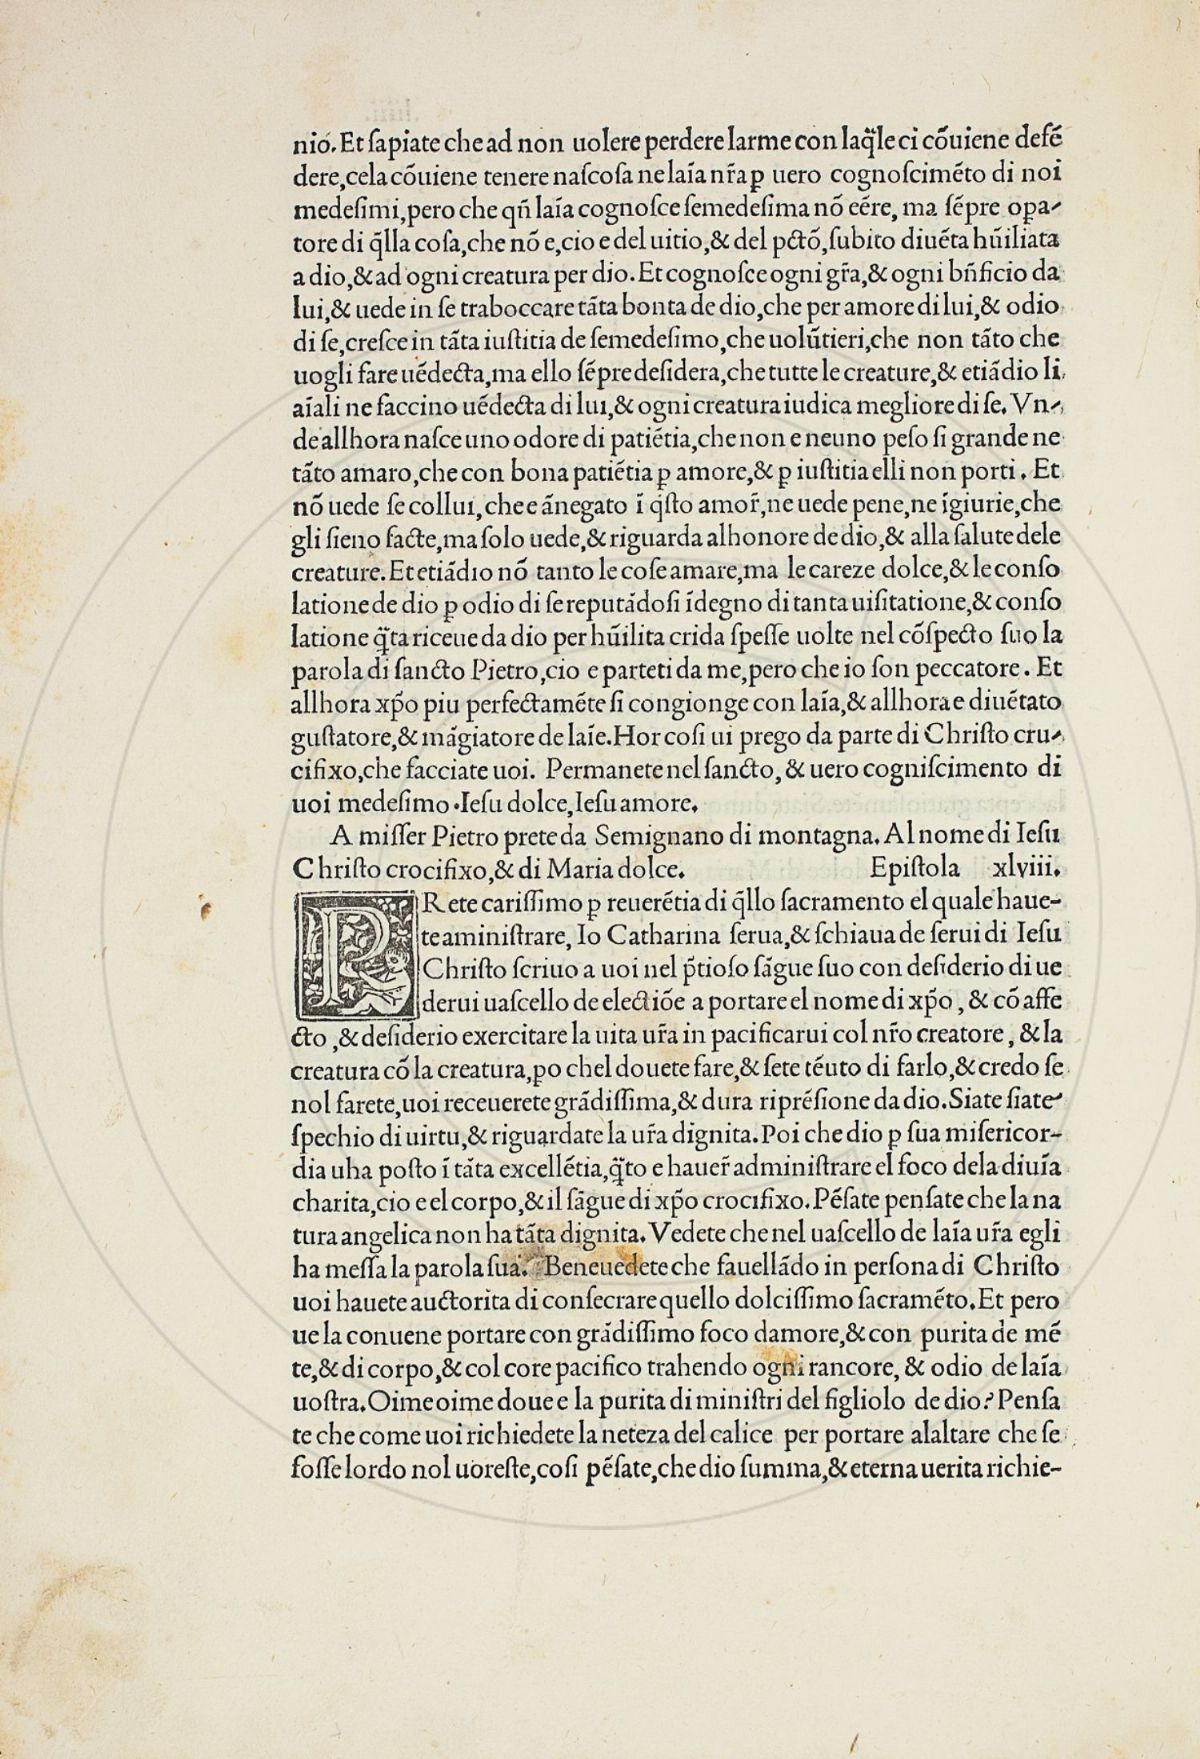 nio. Et ſapiate che ad non uolere perdere larme con laq̃le ci cõuiene defẽ
dere, cela cõuiene tenere naſcoſa ne laĩa nr̃a ꝑ uero cognoſcimẽto di noi
medeſimi, pero che qñ laĩa cognoſce ſemedeſima nõ eẽre, ma ſẽpre oꝑa-
tore di q̃lla coſa, che nõ e, cio e del uitio, & del pctõ, ſubito diuẽta hũiliata
a dio, & ad ogni creatura per dio. Et cognoſce ogni gr̃a, & ogni bñficio da
lui, & uede in ſe traboccare tãta bonta de dio, che per amore di lui, & odio
di ſe, creſce in tãta iuſtitia de ſemedeſimo, che uolũtieri, che non tãto che
uogli fare uẽdecta, ma ello ſẽpre deſidera, che tutte le creature, & etiãdio li
aĩali ne faccino uẽdecta di lui, & ogni creatura iudica megliore di ſe. Vn-
de allhora naſce uno odore di patiẽtia, che non e neuno peſo ſi grande ne
tãto amaro, che con bona patiẽtia ꝑ amore, & ꝑ iuſtitia elli non porti. Et
nõ uede ſe collui, che e ãnegato ĩ q̃ſto amor̃, ne uede pene, ne ĩgiurie, che
gli ſieno facte, ma ſolo uede, & riguarda alhonore de dio, & alla ſalute dele
creature. Et etiãdio nõ tanto le coſe amare, ma le careze dolce, & le conſo
latione de dio ꝑ odio di ſe reputãdoſi ĩdegno di tanta uiſitatione, & conſo
latione q̃ta riceue da dio per hũilita crida ſpeſſe uolte nel cõſpecto ſuo la
parola di ſancto Pietro, cio e parteti da me, pero che io ſon peccatore. Et
allhora xp̃o piu perfectamẽte ſi congionge con laĩa, & allhora e diuẽtato
guſtatore, & mãgiatore de laĩe. Hor coſi ui prego da parte di Chriſto cru-
cifixo, che facciate uoi. Permanete nel ſancto, & uero cogniſcimento di
uoi medeſimo. Ieſu dolce, Ieſu amore.
A miſſer Pietro prete da Semignano di montagna. Al nome di Ieſu
Chriſto crocifixo, & di Maria dolce. Epiſtola xlviii.
PRete cariſſimo ꝑ reuerẽtia di q̃llo ſacramento el quale haue-
te aminiſtrare, Io Catharina ſerua, & ſchiaua de ſerui di Ieſu
Chriſto ſcriuo a uoi nel p̃tioſo ſãgue ſuo con deſiderio di ue
derui uaſcello de electiõe a portare el nome di xp̃o, & cõ affe
cto, & deſiderio exercitare la uita ur̃a in pacificarui col nr̃o creatore, & la
creatura cõ la creatura, ꝑo chel douete fare, & ſete tẽuto di farlo, & credo ſe
nol farete, uoi receuerete grãdiſſima, & dura riprẽſione da dio. Siate ſiate
ſpechio di uirtu, & riguardate la ur̃a dignita. Poi che dio ꝑ ſua miſericor-
dia uha poſto ĩ tãta excellẽtia, q̃to e hauer̃ adminiſtrare el foco dela diuĩa
charita, cio e el corpo, & il ſãgue di xp̃o crocifixo. Pẽſate penſate che la na
tura angelica non ha tãta dignita. Vedete che nel uaſcello de laĩa ur̃a egli
ha meſſa la parola ſua. Ben euedete che fauellãdo in perſona di Chriſto
uoi hauete auctorita di conſecrare quello dolciſſimo ſacramẽto. Et pero
ue la conuene portare con grãdiſſimo foco damore, & con purita de mẽ
te, & di corpo, & col core pacifico trahendo ogni rancore, & odio de laĩa
uoſtra. Oime oime doue e la purita di miniſtri del figliolo de dio? Penſa
te che come uoi richiedete la neteza del calice per portare alaltare che ſe
foſſe lordo nol uoreſte, coſi pẽſate, che dio ſumma, & eterna uerita richie-